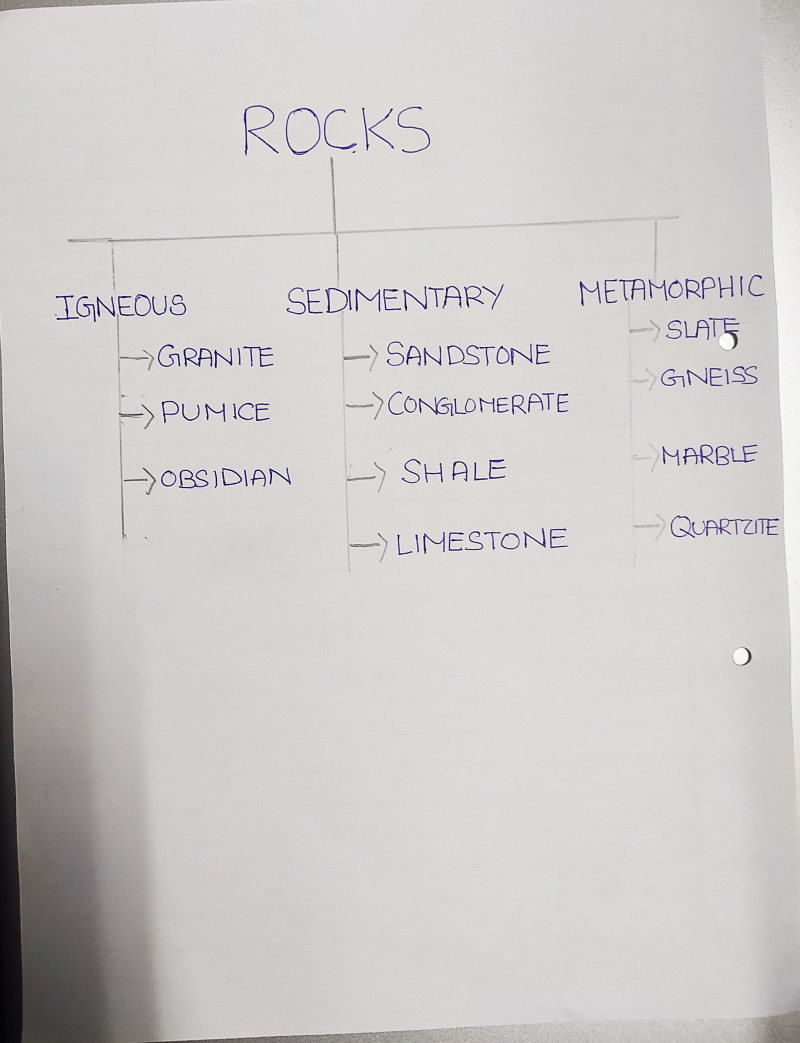 ROCKS
IGNEOUS
GRANITE
PUMICE
OBSIDIAN
SEDIMENTARY
SANDSTONE
CONGLOMERATE
SHALE
LIMESTONE
METAMORPHIC
SLATE
GNEISS
MARBLE
QUARTZITE